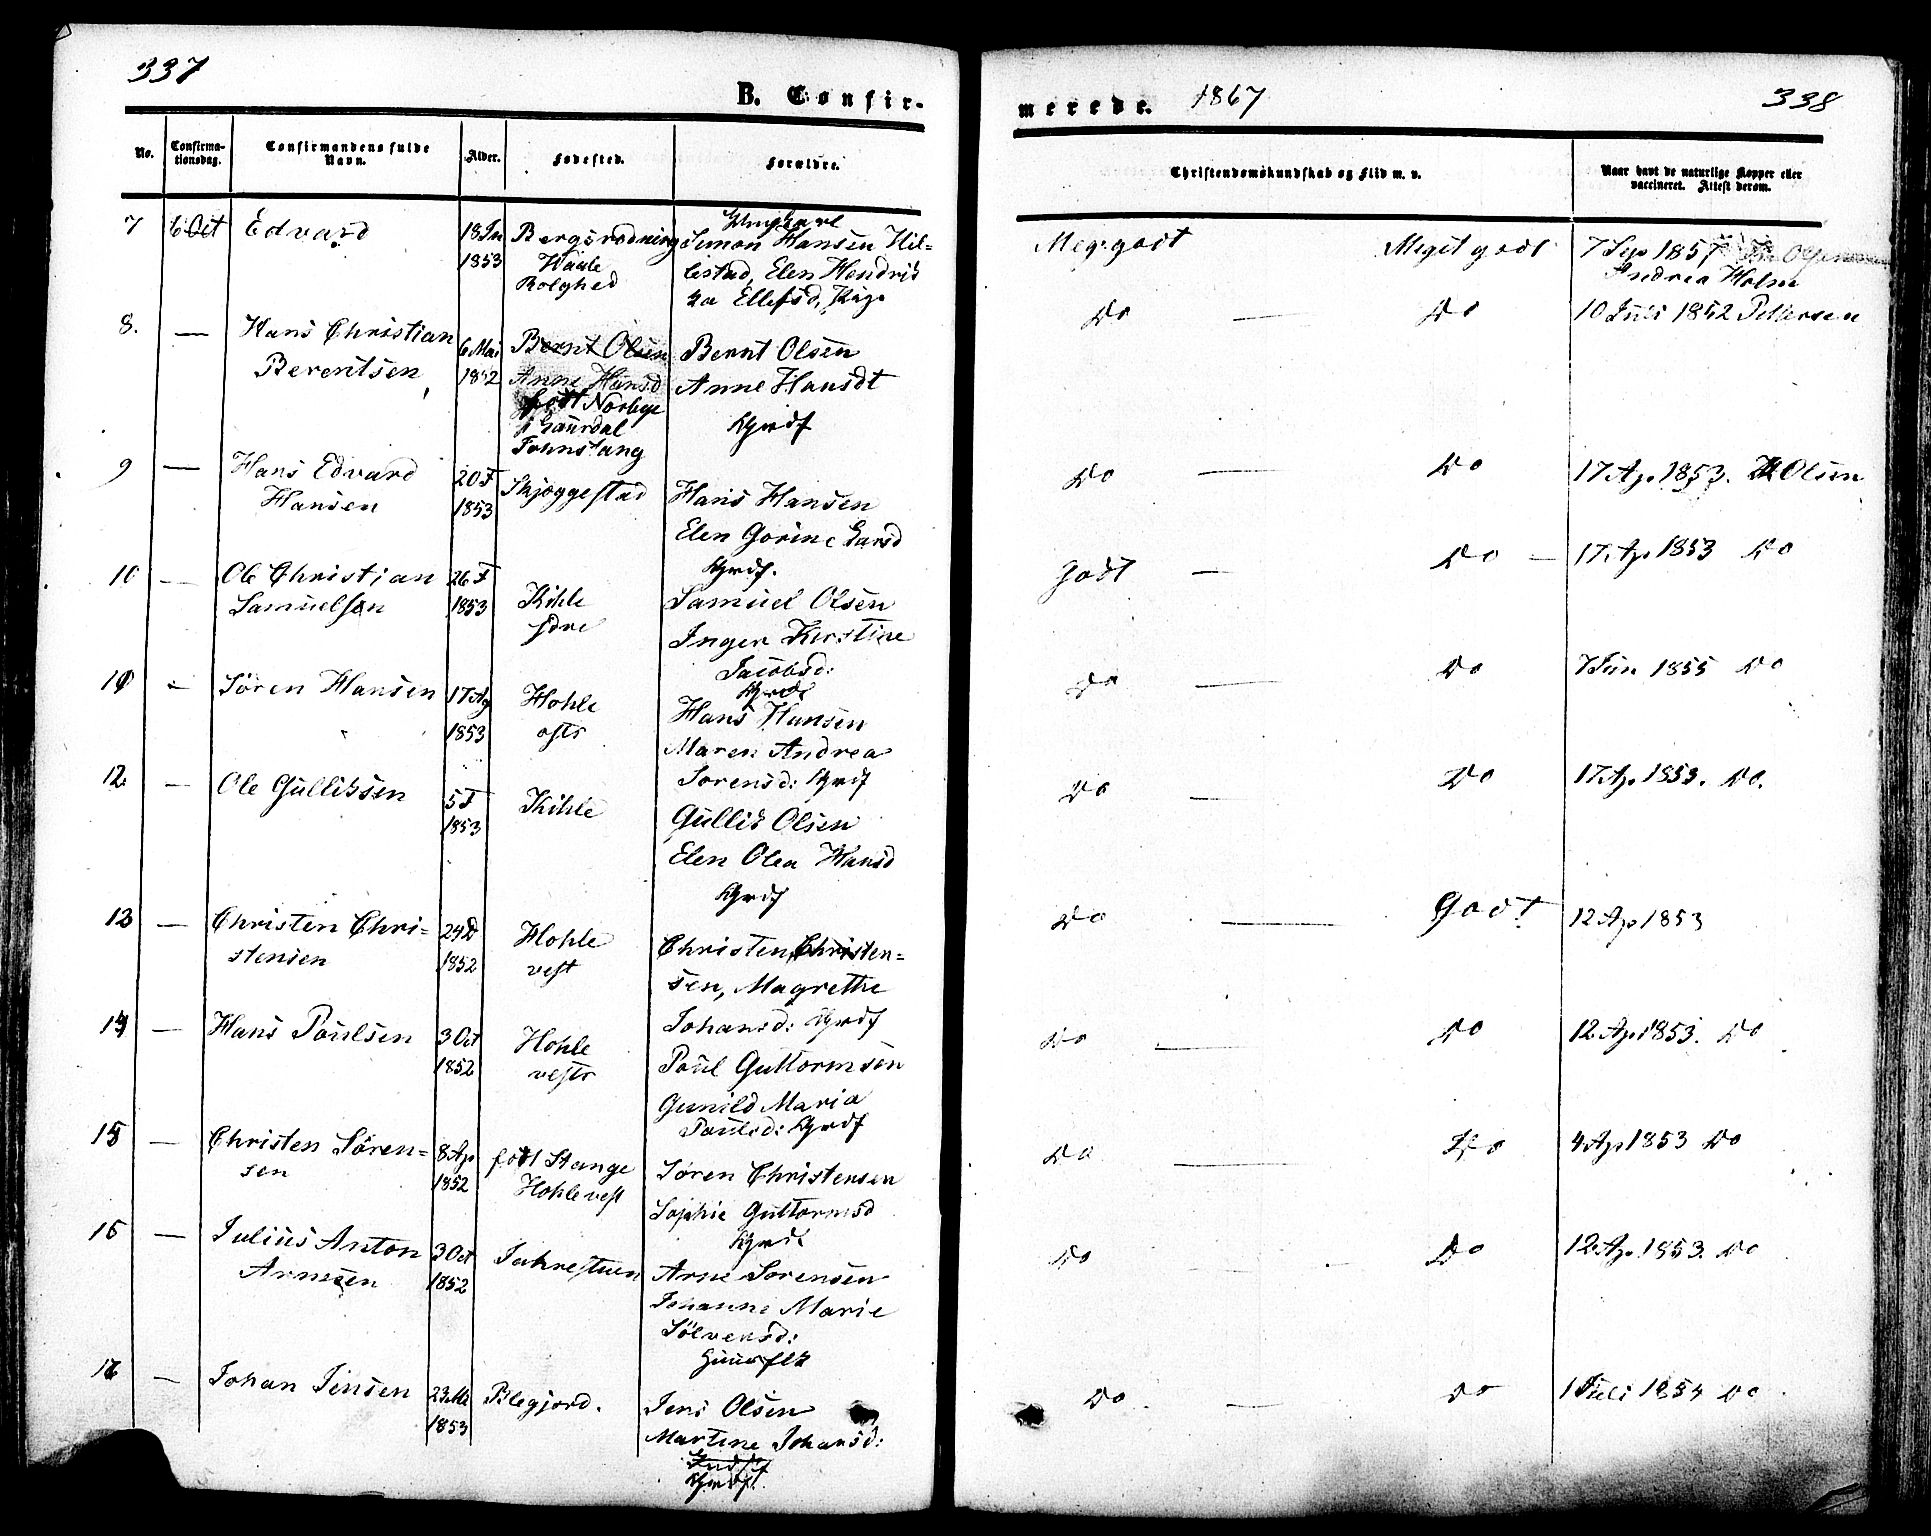 337
B. Confir-
No.
Confirma-
tionsdag.
Confirmandens fulde
Navn.
Alder.
Fødested.
Forældre.
7 6 Oct Edvard 18 Jn 1853 Bergsrødning
Vaale
Ungkarl
Simon Hansen Hil-
lestad, Elen Hendrik
ka Ellefsd, Pige
8. — Hans Christian
Berentsen
6 Mai
1852
Bernt Olsen
Anne Hansd
født Norbye
i Laurdal
Bernt Olsen
Anne Hansdt
Grdf
9 — Hans Edvard
Hansen
20 F
1853
Skjæggestad
Hans Hansen
Elen Gorine Larsd
Grdf.
10 — Ole Christian
Samuelsen
26 F
1853
Kihle
sdre
Samuel Olsen
Inger Kirstine
Jacobsd:
Grdf
11 - Sören Hansen 17 Ag
1853
Hohle
østr
Hans Hansen
Maren Andrea
Sorensd: Grdf
12. — Ole Gulliksen
5 F
1853
Kihle
Gullik Olsen
Elen Olea Hansd
Grdf
13 — Christen Chri-
stensen
24 D
1852
Hohle
vest
Christen Christen=
sen, Magrethe
Johansd: Grdf
14 — Hans Paulsen
3 Oct
1852
Hohle
vestr
Paul Guttormsen
Gunild Maria
Paulsd: Grdf
15 — Christen Sören-
sen
8 Ap
1852
født Stange
Hohle vest
Sören Christensen
Sophie Guttormsd
Grdf
15 — Julius Anton
Arnesen
3 Oct
1852
Arne Sorensen
Johanne Marie
Sölvensd:
Huusflk
16 — Johan Jensen
23 Mi
1853
Blegjord.
Jens Olsen
Martine Johansd:
Grdf.
merede.
1867
338
Christendomskundskab og Flid m. v.
Naar havt de naturlige Kopper eller
vaccineret. Attest derom.
Meg: godt Meget godt 7 Sep 1857
Andrea Holm
Do — Do 10 Juli 1852 Pettersen
Do — Do 17 Ap. 1853. Olsen
Godt — Do — 17 Ap 1853 Do
Do — Do 7 Jun. 1855 Do
Do — Do 17 Ap. 1853. Do.
Do — Godt 12 Ap 1853
Do — Do 12 Ap 1853. Do
Do — Do 4 Ap 1853 Do
Do Do 12 Ap. 1853. Do
Do — Do 1 Juli 1854 Do